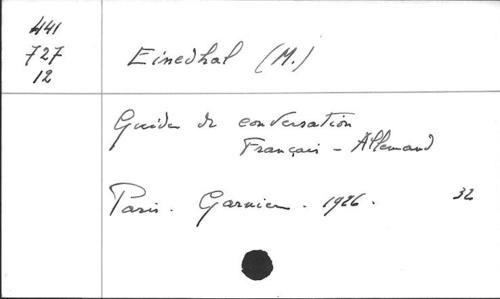 441
727
12
Einedhal (M.)
Guides de conversation
Français - Allemand
Paris. Garnier. 1926. 32